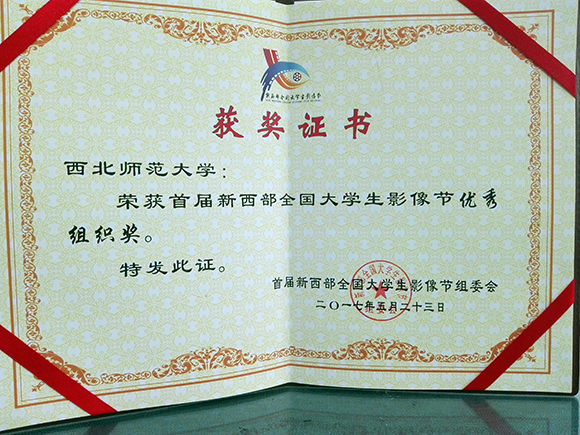 获奖证书
西北师范大学：
荣获首届新西部全国大学生影像节优秀
组织奖。
特发此证。
首届新西部全国大学生影像节组委会
二〇一七年五月二十三日